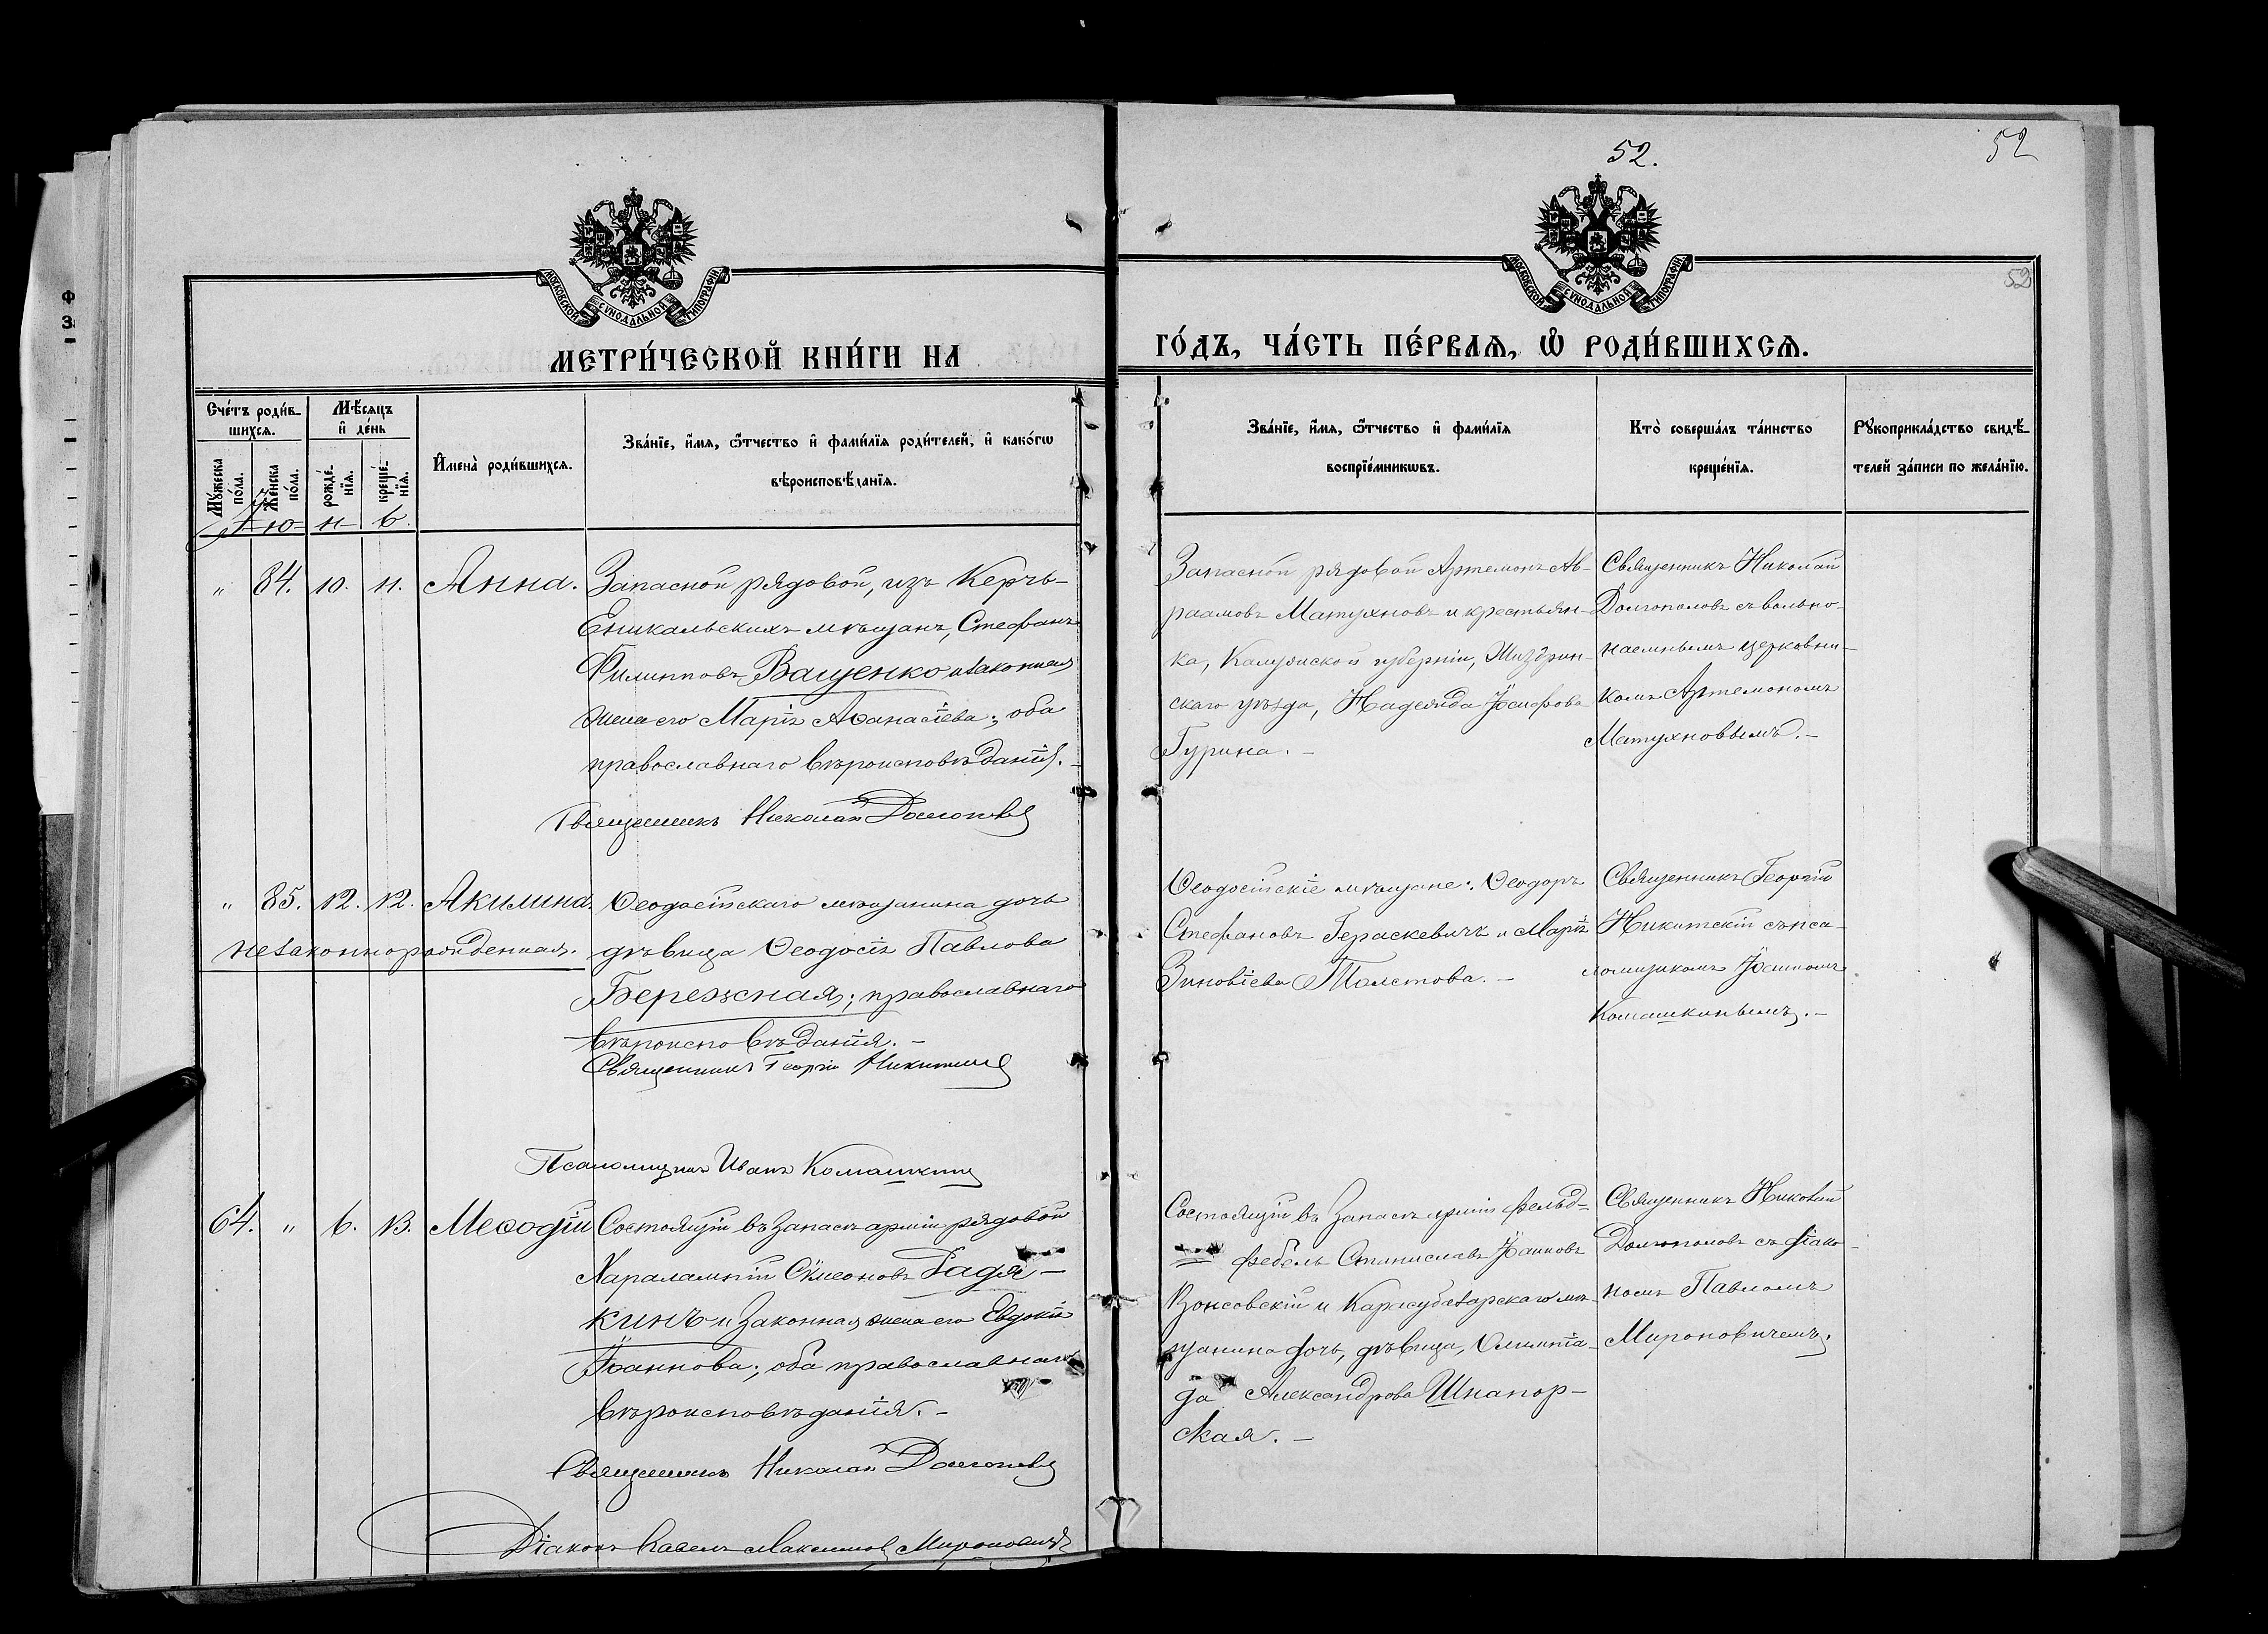 52.
52
52
МОСКОВСКОЙ СѴНОДАЛЬНОЙ ТИПОГРАФІИ
МОСКОВСКОЙ СѴНОДАЛЬНОЙ ТИПОГРАФІИ
МЕТРИ́ЧЕСКОЙ КНИ́ГИ НА
ГО́ДЪ, ЧА́СТЬ ПЕ́РВАѦ, Ѽ РОДИ́ВШИХСѦ.
Сче́тъ роди́в-
шихсѧ.
Мꙋ́жеска
по́ла.
Же́нска
по́ла.
Мѣ́сѧцъ
и҆ де́нь
рожде́-
нїѧ.
креще́-
нїѧ.
И҆мена̀ роди́вшихсѧ.
Зва́нїе, и҆́мѧ, ѻ҆́тчество и҆ фами́лїѧ роди́телей, и҆ како́гѡ
вѣроисповѣ́данїѧ.
Зва́нїе, и҆́мѧ, ѻ҆́тчество и҆ фами́лїѧ
воспрїе́мникѡвъ.
Кто̀ соверша́лъ та́инство
креще́нїѧ.
Рꙋкоприкла́дство свидѣ́-
телей за́писи по жела́нїю.
І- ю- н- ь.
" 84. 10. 11. Анна. Запасной рядовой, изъ Керчь-
Еникальскихъ мѣщанъ, Стефанъ
Филипповъ Ващенко и законная
жена его Марія Аѳанасіева; оба
православнаго вѣроисповѣданія.-
Священникъ Николай Долгополовъ
Запасной рядовой Артемонъ Ав-
раамовъ Матухновъ и крестьян-
ка, Калужской губерніи, Жиздрин-
скаго уѣзда, Надежда Іосифова
Гурина.-
Священникъ Николай
Долгополовъ съ вольно-
наемнымъ церковни-
комъ Артемономъ
Матухновымъ.-
" 85. 12. 12. Акилина. Ѳеодосійскаго мѣщанина дочь
незаконнорожденная. дѣвица Ѳеодосія Павлова
Бережная; православнаго
вѣроисповѣданія.-
Священникъ Георгій Никитскій
Псаломщикъ Иванъ Комашкинъ
Ѳеодосійскіе мѣщане: Ѳеодоръ
Стефановъ Гераскевичъ и Марія
Зиновіева Толстова.-
Священникъ Георгій
Никитскій съ пса-
ломщикомъ Іоанномъ
Комашкинымъ.-
64. " 6. 13. Меѳодій Состоящій въ запасѣ арміи рядовой
Харалампій Сѵмеоновъ Гадя-
кинъ и законная жена его Евдокія
Іоаннова; оба православнаго
вѣроисповѣданія.-
Священникъ Николай Долгополовъ
Діаконъ Павелъ Максимовъ Мироновичъ
Состоящій въ запасѣ арміи фельд-
фебель Станиславъ Іоанновъ
Вонсовскій и Карасубазарскаго мѣ-
щанина дочь, дѣвица, Олимпіа-
да Александрова Шнапор-
ская.-
Священникъ Николай
Долгополовъ съ діако-
номъ Павломъ
Мироновичемъ.